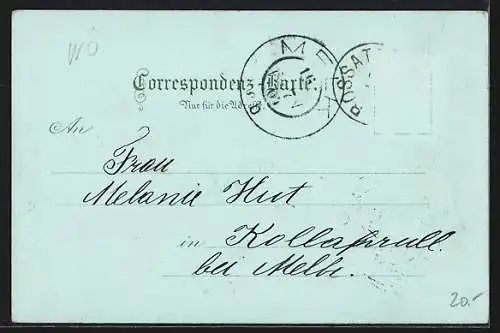 WÖ
Correspondenz-Karte.
Nur für die Adresse
ROSSAT
An
Frau
Melanie Hut
in Kollapriell
bei Melk.
20.-